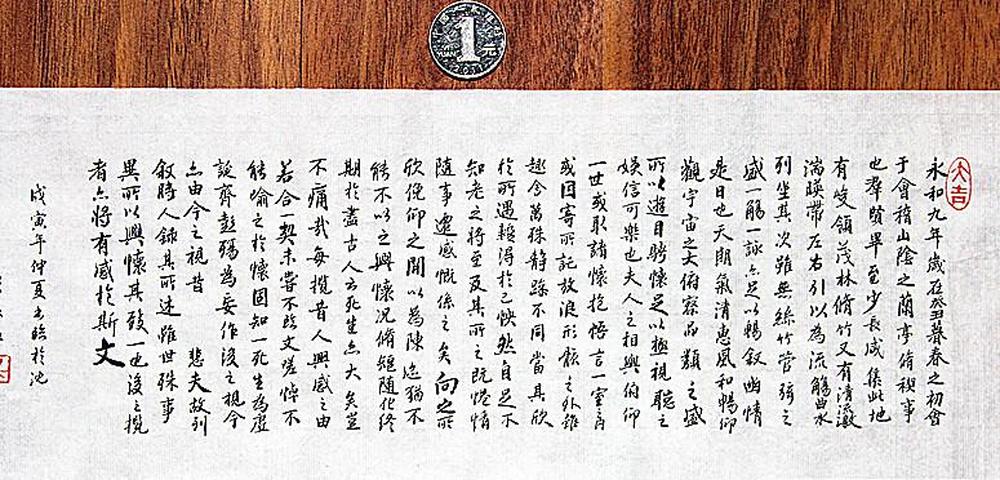 中国人民银行
1
元
YI YUAN
2011
大吉
永和九年歲在癸丑暮春之初會
于會稽山陰之蘭亭脩禊事
也群賢畢至少長咸集此地
有峻領茂林脩竹又有清流激
湍暎帶左右引以為流觴曲水
列坐其次雖無絲竹管弦之
盛一觴一詠亦足以暢敘幽情
是日也天朗氣清惠風和暢仰
觀宇宙之大俯察品類之盛
所以遊目騁懷足以極視聽之
娛信可樂也夫人之相與俯仰
一世或取諸懷抱悟言一室之內
或因寄所託放浪形骸之外雖
趣舍萬殊靜躁不同當其欣
於所遇蹔得於己怏然自足不
知老之將至及其所之既惓情
隨事遷感慨係之矣向之所
欣俛仰之間以為陳迹猶不
能不以之興懷況脩短隨化終
期於盡古人云死生亦大矣豈
不痛哉每攬昔人興感之由
若合一契未嘗不臨文嗟悼不
能喻之於懷固知一死生為虛
誕齊彭殤為妄作後之視今
亦由今之視昔 悲夫故列
敘時人錄其所述雖世殊事
異所以興懷其致一也後之攬
者亦將有感於斯文
戊寅年仲夏書臨於池